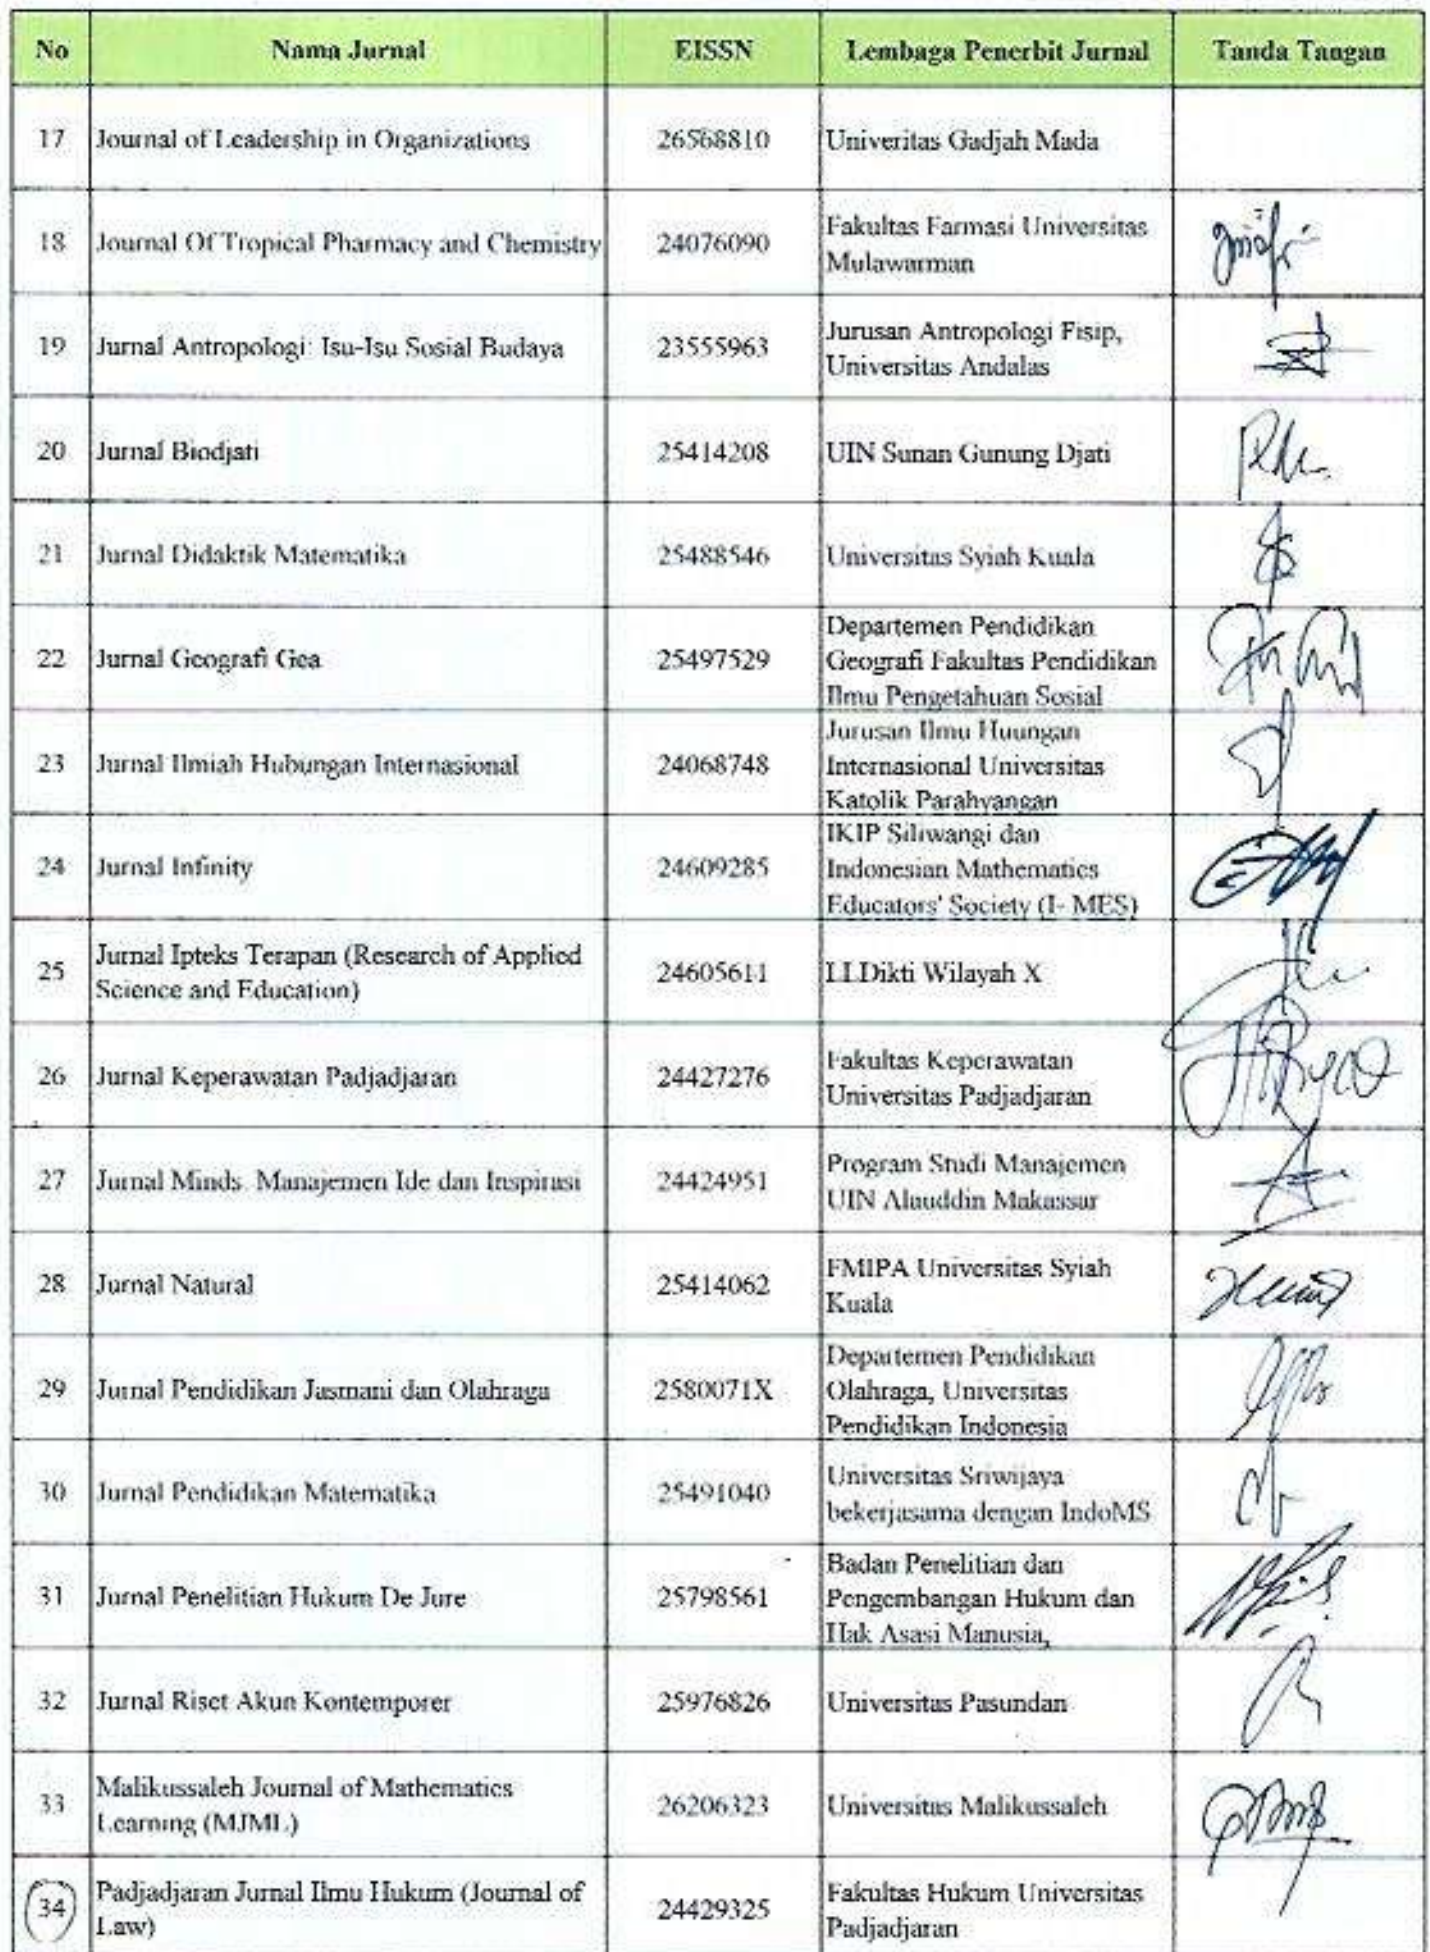 No Nama Jurnal EISSN Lembaga Penerbit Jurnal Tanda Tangan
17 Journal of Leadership in Organizations 26568810 Univeritas Gadjah Mada
18 Journal Of Tropical Pharmacy and Chemistry 24076090 Fakultas Farmasi Universitas
Mulawarman
19 Jurnal Antropologi: Isu-Isu Sosial Budaya 23555963 Jurusan Antropologi Fisip,
Universitas Andalas
20 Jurnal Biodjati 25414208 UIN Sunan Gunung Djati
21 Jurnal Didaktik Matematika 25488546 Universitas Syiah Kuala
22 Jurnal Geografi Gea 25497529 Departemen Pendidikan
Geografi Fakultas Pendidikan
Ilmu Pengetahuan Sosial
23 Jurnal Ilmiah Hubungan Internasional 24068748 Jurusan Ilmu Huungan
Internasional Universitas
Katolik Parahyangan
24 Jurnal Infinity 24609285 IKIP Siliwangi dan
Indonesian Mathematics
Educators' Society (I- MES)
25 Jurnal Ipteks Terapan (Research of Applied
Science and Education) 24605611 LLDikti Wilayah X
26 Jurnal Keperawatan Padjadjaran 24427276 Fakultas Keperawatan
Universitas Padjadjaran
27 Jurnal Minds: Manajemen Ide dan Inspirasi 24424951 Program Studi Manajemen
UIN Alauddin Makassar
28 Jurnal Natural 25414062 FMIPA Universitas Syiah
Kuala
29 Jurnal Pendidikan Jasmani dan Olahraga 2580071X Departemen Pendidikan
Olahraga, Universitas
Pendidikan Indonesia
30 Jurnal Pendidikan Matematika 25491040 Universitas Sriwijaya
bekerjasama dengan IndoMS
31 Jurnal Penelitian Hukum De Jure 25798561 Badan Penelitian dan
Pengembangan Hukum dan
Hak Asasi Manusia,
32 Jurnal Riset Akun Kontemporer 25976826 Universitas Pasundan
33 Malikussaleh Journal of Mathematics
Learning (MJML) 26206323 Universitas Malikussaleh
34 Padjadjaran Jurnal Ilmu Hukum (Journal of
Law) 24429325 Fakultas Hukum Universitas
Padjadjaran